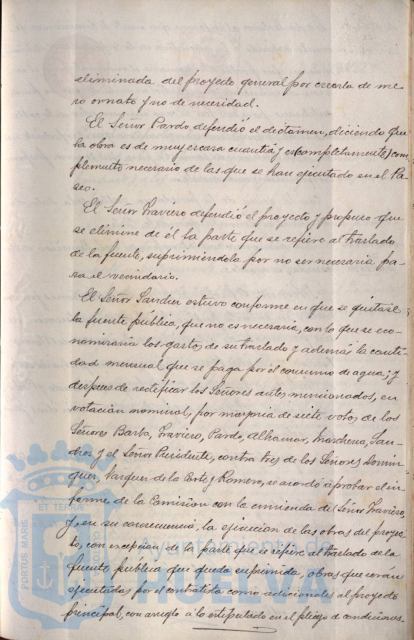 eliminada del proyecto general por ser de me-
ro ornato y no de necesidad.
El Señor Pardo defendió el dictamen, diciendo que
la obra es de muy escasa cuantía y es (completamente) com-
plemento necesario de las que se han ejecutado en el Pa-
seo.
El Señor Traviero defendió el proyecto y propuso que
se elimine de él la parte que se refiere al traslado
de la fuente, suprimiéndola por no ser necesaria pa-
ra el vecindario.
El Señor estuvo conforme en que se quitase
la fuente pública, que no es necesaria, con lo que se eco-
nomizaria los gastos de su traslado y además la canti-
dad mensual que se paga por el consumo de agua; y
despues de rectificar los Señores antes mencionados, en
votación nominal, por mayoria de siete votos de los
Señores Barba, Traviero, Pardo, Alhamar, Marchena, San-
y el Señor Presidente, contra tres de los Señores Domin-
guez, Vazquez de la Corte y Romero, se acordó aprobar el in-
forme de la Comision con la enmienda del Señor Traviero,
y, en su consecuencia, la ejecucion de las obras del proyec-
to, con excepcion de la parte que se refiere al traslado de la
fuente publica que queda suprimida, obras que seran
ejecutadas por el contratista como adicionales al proyecto
principal, con arreglo a lo estipulado en el pliego de condiciones.
PORTUS MARIS
ET TERRÆ
Ayuntamiento de
HUELVA